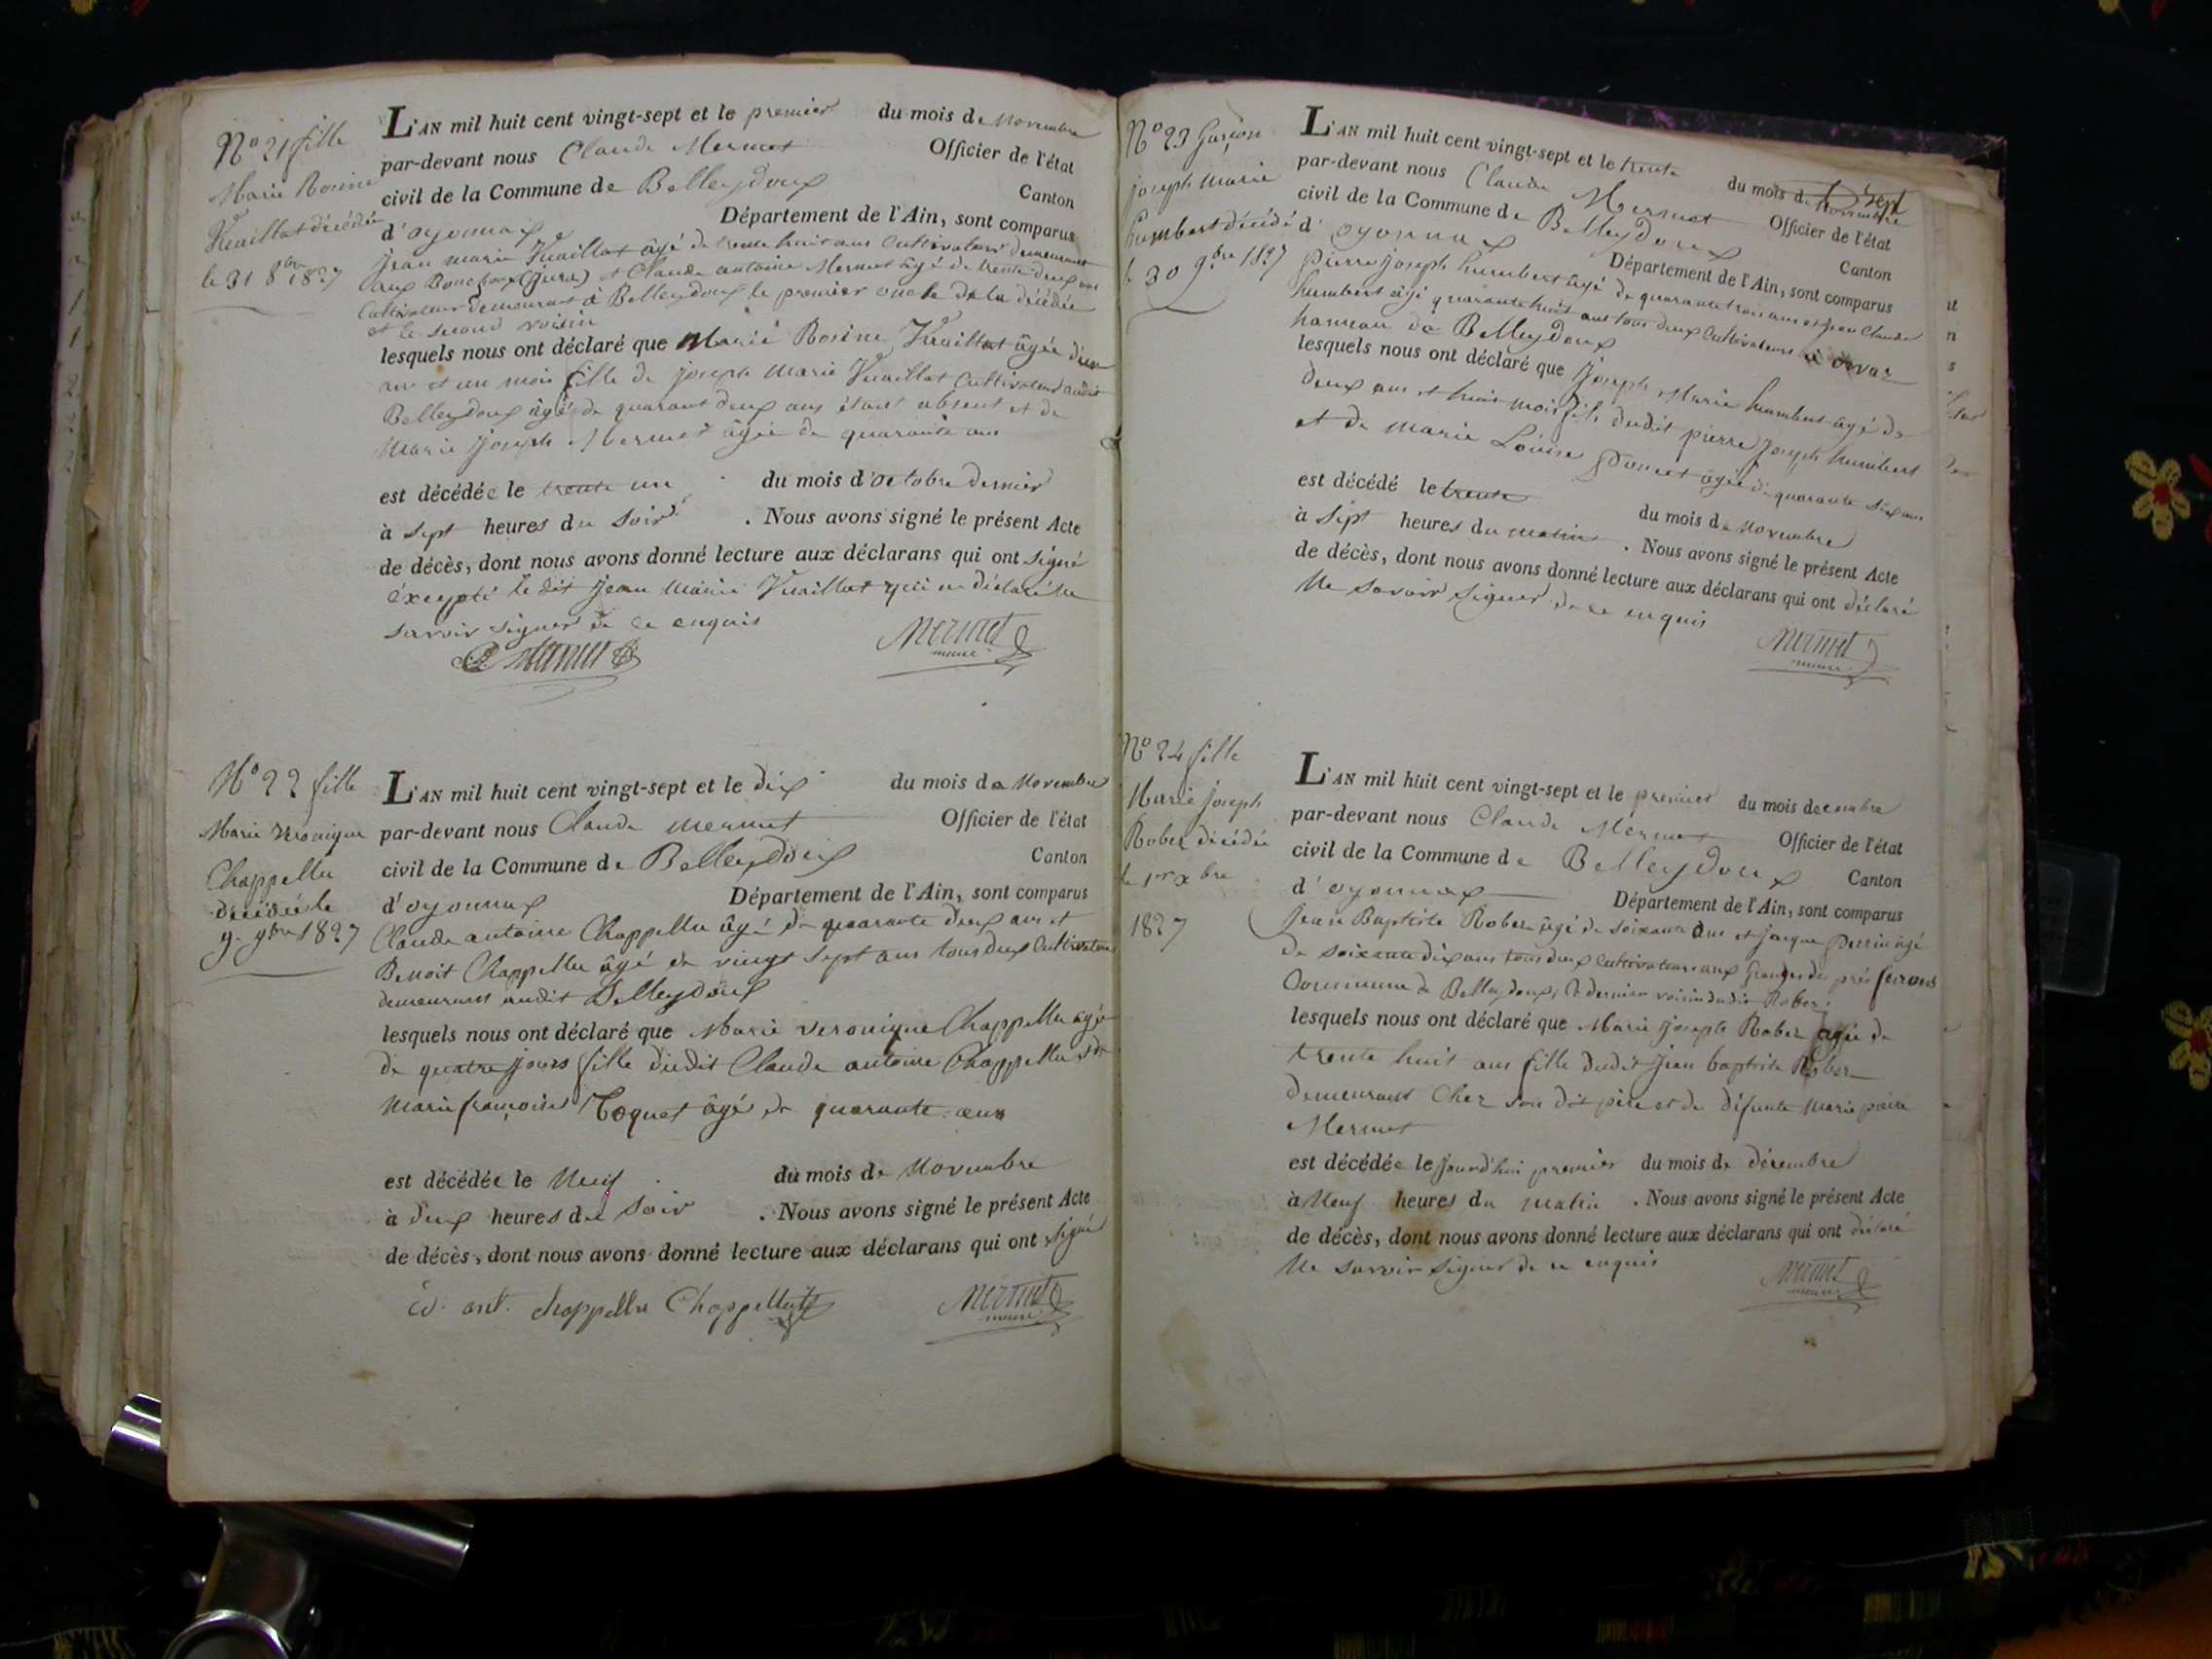 N° 21 fille
Marie Rosine
Vuaillat décédée
le 31 8bre 1827
L'AN mil huit cent vingt-sept et le premier du mois de Novembre
par-devant nous Claude Mermet Officier de l'état
civil de la Commune de Belleydoux Canton
d'oyonnax Département de l'Ain, sont comparus
Jean marie Vuaillat âgé de trente huit ans Cultivateur demeurant
aux Bouchoux (Jura) et Claude antoine Mermet âgé de trente deux ans
Cultivateur demeurant à Belleydoux le premier oncle de la décédée
et le second voisin
lesquels nous ont déclaré que Marie Rosine Vuaillat âgée d'un
an et un mois fille de Joseph Marie Vuaillat Cultivateur audit
Belleydoux âgé de quarant deux ans étant absent et de
Marie Joseph Mermet âgée de quarante ans
est décédée le trente un du mois d'octobre dernier
à sept heures du soir . Nous avons signé le présent Acte
de décès, dont nous avons donné lecture aux déclarans qui ont signé
éxcepté le dit Jean Marie Vuaillat qui a déclaré ne
savoir signer de ce enquis
Mermet
Mermet
maire
N° 22 fille
Marie Veronique
Chappellu
décédée le
9. 9bre 1827
L'AN mil huit cent vingt-sept et le dix du mois de Novembre
par-devant nous Claude Mermet Officier de l'état
civil de la Commune de Belleydoux Canton
d'oyonnax Département de l'Ain, sont comparus
Claude antoine Chappellu âgé de quarante deux ans et
Benoit Chappellu âgé de vingt sept ans tous deux Cultivateurs
demeurant audit Belleydoux
lesquels nous ont déclaré que Marie veronique Chappellu âgé
de quatre jours fille dudit Claude antoine Chappellu et de
Marie françoise Coquet âgé de quarante ans
est décédée le Neuf du mois de Novembre
à deux heures du soir . Nous avons signé le présent Acte
de décès, dont nous avons donné lecture aux déclarans qui ont signé
cd. ant. chappellu Chappellu
Mermet
maire
N° 23 Garçon
joseph marie
humbert décédé
le 30 9bre 1827
L'AN mil huit cent vingt-sept et le trente du mois de Novembre
par-devant nous Claude Mermet Officier de l'état
civil de la Commune de Belleydoux Canton
d'oyonnax Département de l'Ain, sont comparus
pierre joseph humbert âgé de quarante trois ans et jean Claude
humbert âgé quarante huit ans tous deux Cultivateurs à orvaz
hameau de Belleydoux
lesquels nous ont déclaré que Joseph Marie humbert âgé de
deux ans et huit mois fils dudit pierre Joseph humbert
et de Marie Louise Poncet âgée de quarante six ans
est décédé le trente du mois de Novembre
à sept heures du matin . Nous avons signé le présent Acte
de décès, dont nous avons donné lecture aux déclarans qui ont déclaré
Ne savoir signer de ce enquis
Mermet
maire
N° 24 fille
Marie Joseph
Rober décédée
le 1er xbre
1827
L'AN mil huit cent vingt-sept et le premier du mois decembre
par-devant nous Claude Mermet Officier de l'état
civil de la Commune de Belleydoux Canton
d'oyonnax Département de l'Ain, sont comparus
Jean Baptiste Rober âgé de soixante ans et jacque Perrin âgé
de soixante dix ans tous deux Cultivateurs aux Granges des prés
Commune de Belleydoux, le dernier voisin dudit Rober
lesquels nous ont déclaré que Marie Joseph Rober âgée de
trente huit ans fille dudit Jean baptiste Rober
demeurant Chez son dit père et de défunte Marie
Mermet
est décédée le jourd'hui premier du mois de décembre
à Neuf heures du matin . Nous avons signé le présent Acte
de décès, dont nous avons donné lecture aux déclarans qui ont déclaré
Ne savoir signer de ce enquis
Mermet
maire